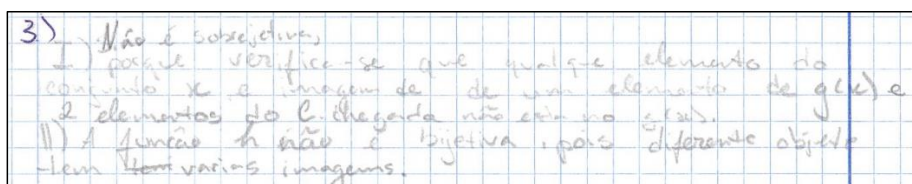 3)
Não é sobrejetiva,
I) porque verifica-se que qualque elemento do
conjunto x e imagem de de um elemento de g(x) e
2 elementos do C. chegada não esta no g(x).
II) A função h não é bijetiva, pois diferente objeto
tem varias imagems.